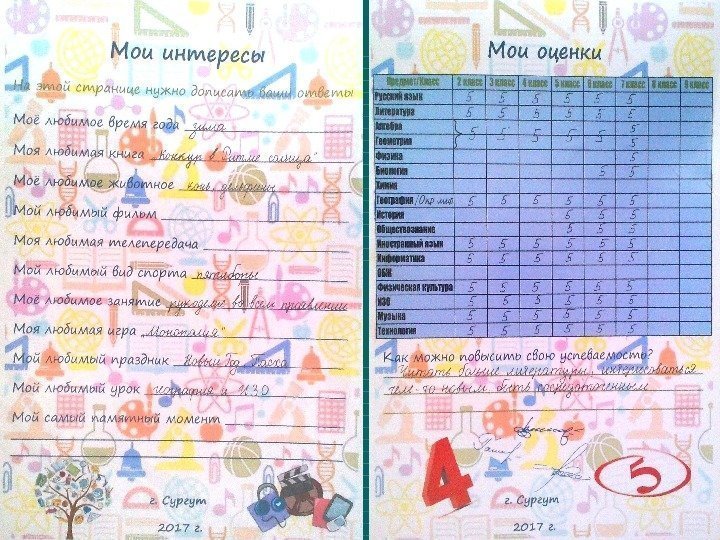 Мои интересы
На этой странице нужно дописать ваши ответы
Моё любимое время года зима
Моя любимая книга „Конкур в ритме солнца"
Моё любимое животное конь, дельфины
Мой любимый фильм
Моя любимая телепередача
Мой любимый вид спорта
Моё любимое занятие рукоделие во всем проявлении
Моя любимая игра „Монополия"
Мой любимый праздник Новый год, Пасха
Мой любимый урок география и ИЗО
Мой самый памятный момент
г. Сургут
2017 г.
Мои оценки
Предмет/Класс 2 класс 3 класс 4 класс 5 класс 6 класс 7 класс 8 класс 9 класс
Русский язык 5 5 5 5 5 5
Литература 5 5 5 5 5 5
Алгебра 5 5 5 5 5 5
Геометрия 5
Физика 5
Биология 5 5
Химия
География/Окр. мир 5 5 5 5 5 5
История 5 5 5
Обществознание 5 5 5
Иностранный язык 5 5 5 5 5 5
Информатика 5 5 5 5 5 5
ОБЖ
Физическая культура 5 5 5 5 5 5
ИЗО 5 5 5 5 5 5
Музыка 5 5 5 5 5 5
Технология 5 5 5 5 5 5
Как можно повысить свою успеваемость?
Читать больше литературы, интересоваться
чем-то новым, быть сосредоточенным
4 5
г. Сургут
2017 г.